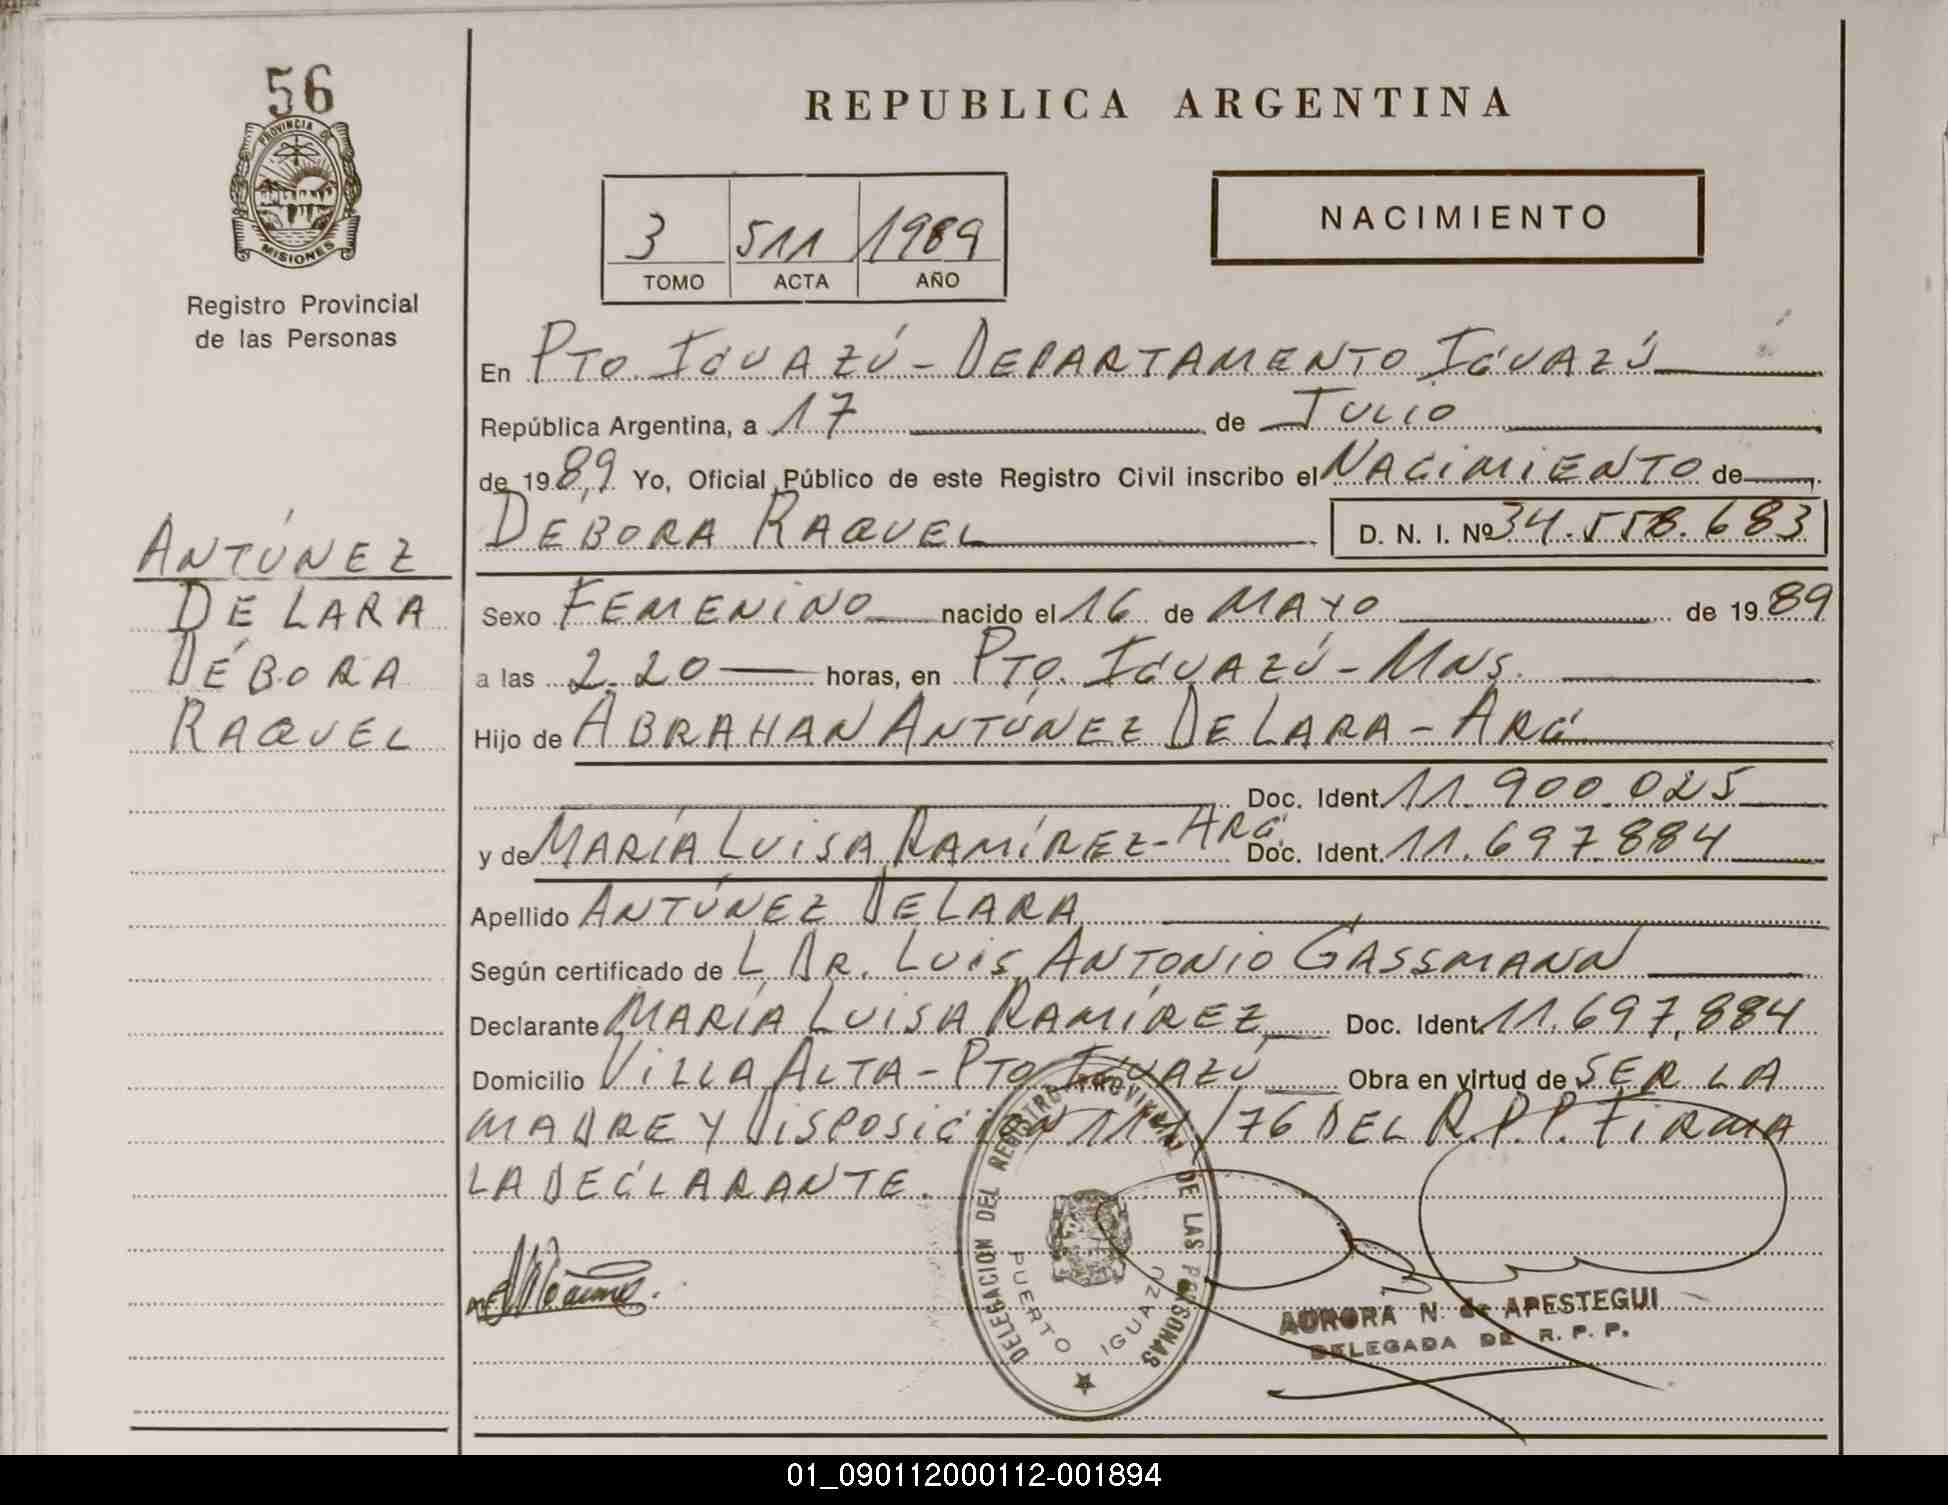 56
PROVINCIA DE
MISIONES
Registro Provincial
de las Personas
ANTÚNEZ
DE LARA
DÉBORA
RAQUEL
REPUBLICA ARGENTINA
3 511 1989
TOMO ACTA AÑO
NACIMIENTO
En PTO. IGUAZÚ - DEPARTAMENTO IGUAZÚ
República Argentina, a 17 de JULIO
de 1989, Yo, Oficial Público de este Registro Civil inscribo el NACIMIENTO de
DÉBORA RAQUEL D. N. I. Nº 34.558.683
Sexo FEMENINO nacido el 16 de MAYO de 1989
a las 2.20 horas, en PTO. IGUAZÚ - MNS.
Hijo de ABRAHAN ANTÚNEZ DE LARA - ARG.
Doc. Ident. 11.900.025
y de MARÍA LUISA RAMÍREZ - ARG. Doc. Ident. 11.697.884
Apellido ANTÚNEZ DE LARA
Según certificado de L DR. LUIS ANTONIO GASSMANN
Declarante MARÍA LUISA RAMÍREZ Doc. Ident. 11.697.884
Domicilio VILLA ALTA - PTO IGUAZÚ Obra en virtud de SER LA
MADRE Y DISPOSICIÓN /76 DEL R.P.P. FIRMA
LA DECLARANTE.
DELEGACION DEL REGISTRO PROVINCIAL DE LAS PERSONAS
PUERTO IGUAZU
AURORA N. de APESTEGUI
DELEGADA DE R. P. P.
01_090112000112-001894